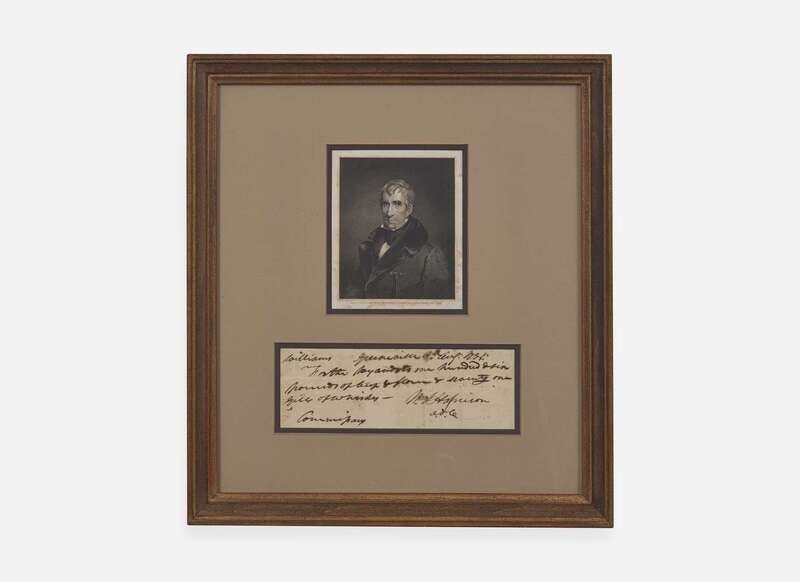 Williams Greenville Augt. 1795.
For the Wyandots one hundred & six
pounds of beef & flour & seventy one
gills of whiskey —
Wm. H. Harrison
a.d.C.
Commissary